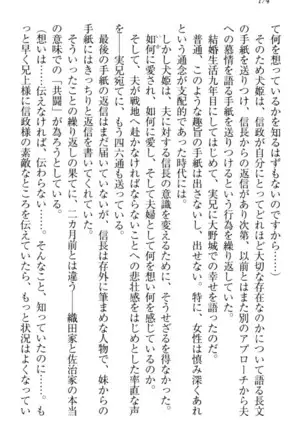 174
て何を想っているかを知るはずもないのですから……)
そのため犬姫は、信政が自分にとってどれほど大切な存在なのかを語る長文
の手紙を送りつけ、信長からの返信があり次第、以前とはまた別のアプローチから夫
への慕情を語る手紙を送りつけるという行為を繰り返していた。
結婚生活九年目にしてはじめて、実兄に大野城での幸せを語ったのだ。
普通、このような趣旨の手紙は出さないし、出せない。特に、女性は慎み深くあれ
という通念が支配的であった時代には。
しかし犬姫は、夫に対する信長の意識を変えるために、そうせざるを得なかった。
如何に愛され、如何に愛し、そして夫婦として何を想い何を感じているのか。
そして、夫が戦地へ赴かなければならないことへの悲壮感をはじめとした率直な声
を──実兄宛てに、もう四六通も送っている。
最後の手紙の返信はまだ届いていないが、信長は存外に筆まめな人物で、妹からの
手紙にはきっちりと返信を書いてくれていた。
そういったことの繰り返しの果てに、二カ月前とは違う──織田家と佐治家の本当
の意味での「共闘」が為ろうとしている。
(想いは……伝えなければ、伝わらない……。そんなこと、知っていたのに……。も
っと早く兄上様に信政様の素敵なところを伝えていたら、もっと状況はよくなってい